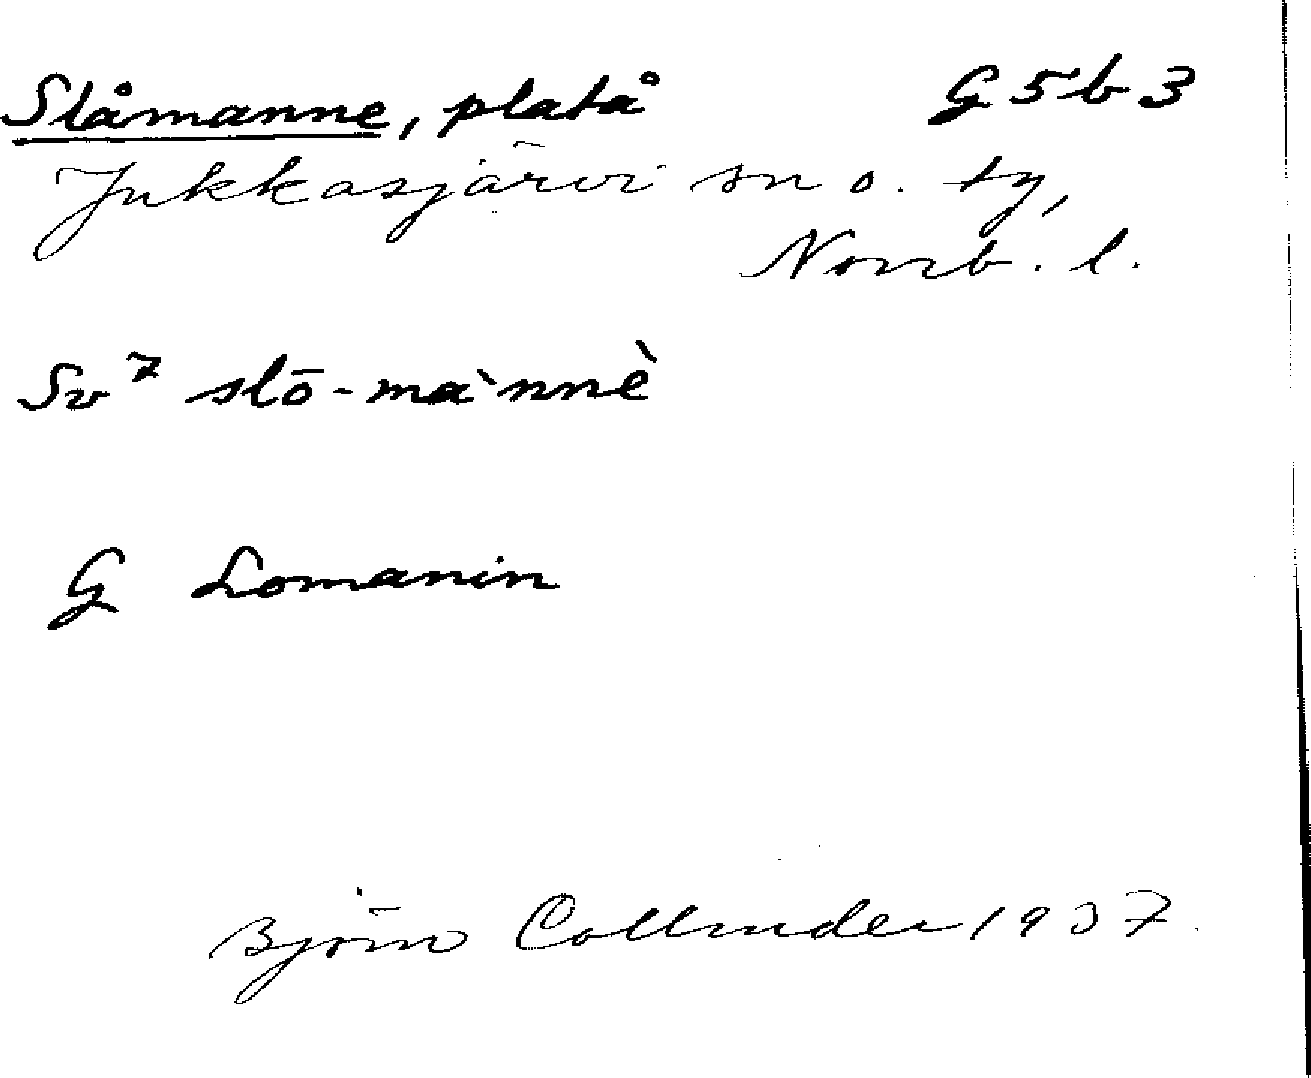 Slåmanne, platå G5b3
Jukkasjärvi sn o. ty,
Norrb. l.
Sv⁷ slō-mànnè
G Lomanin
Björn Collinder 1937.